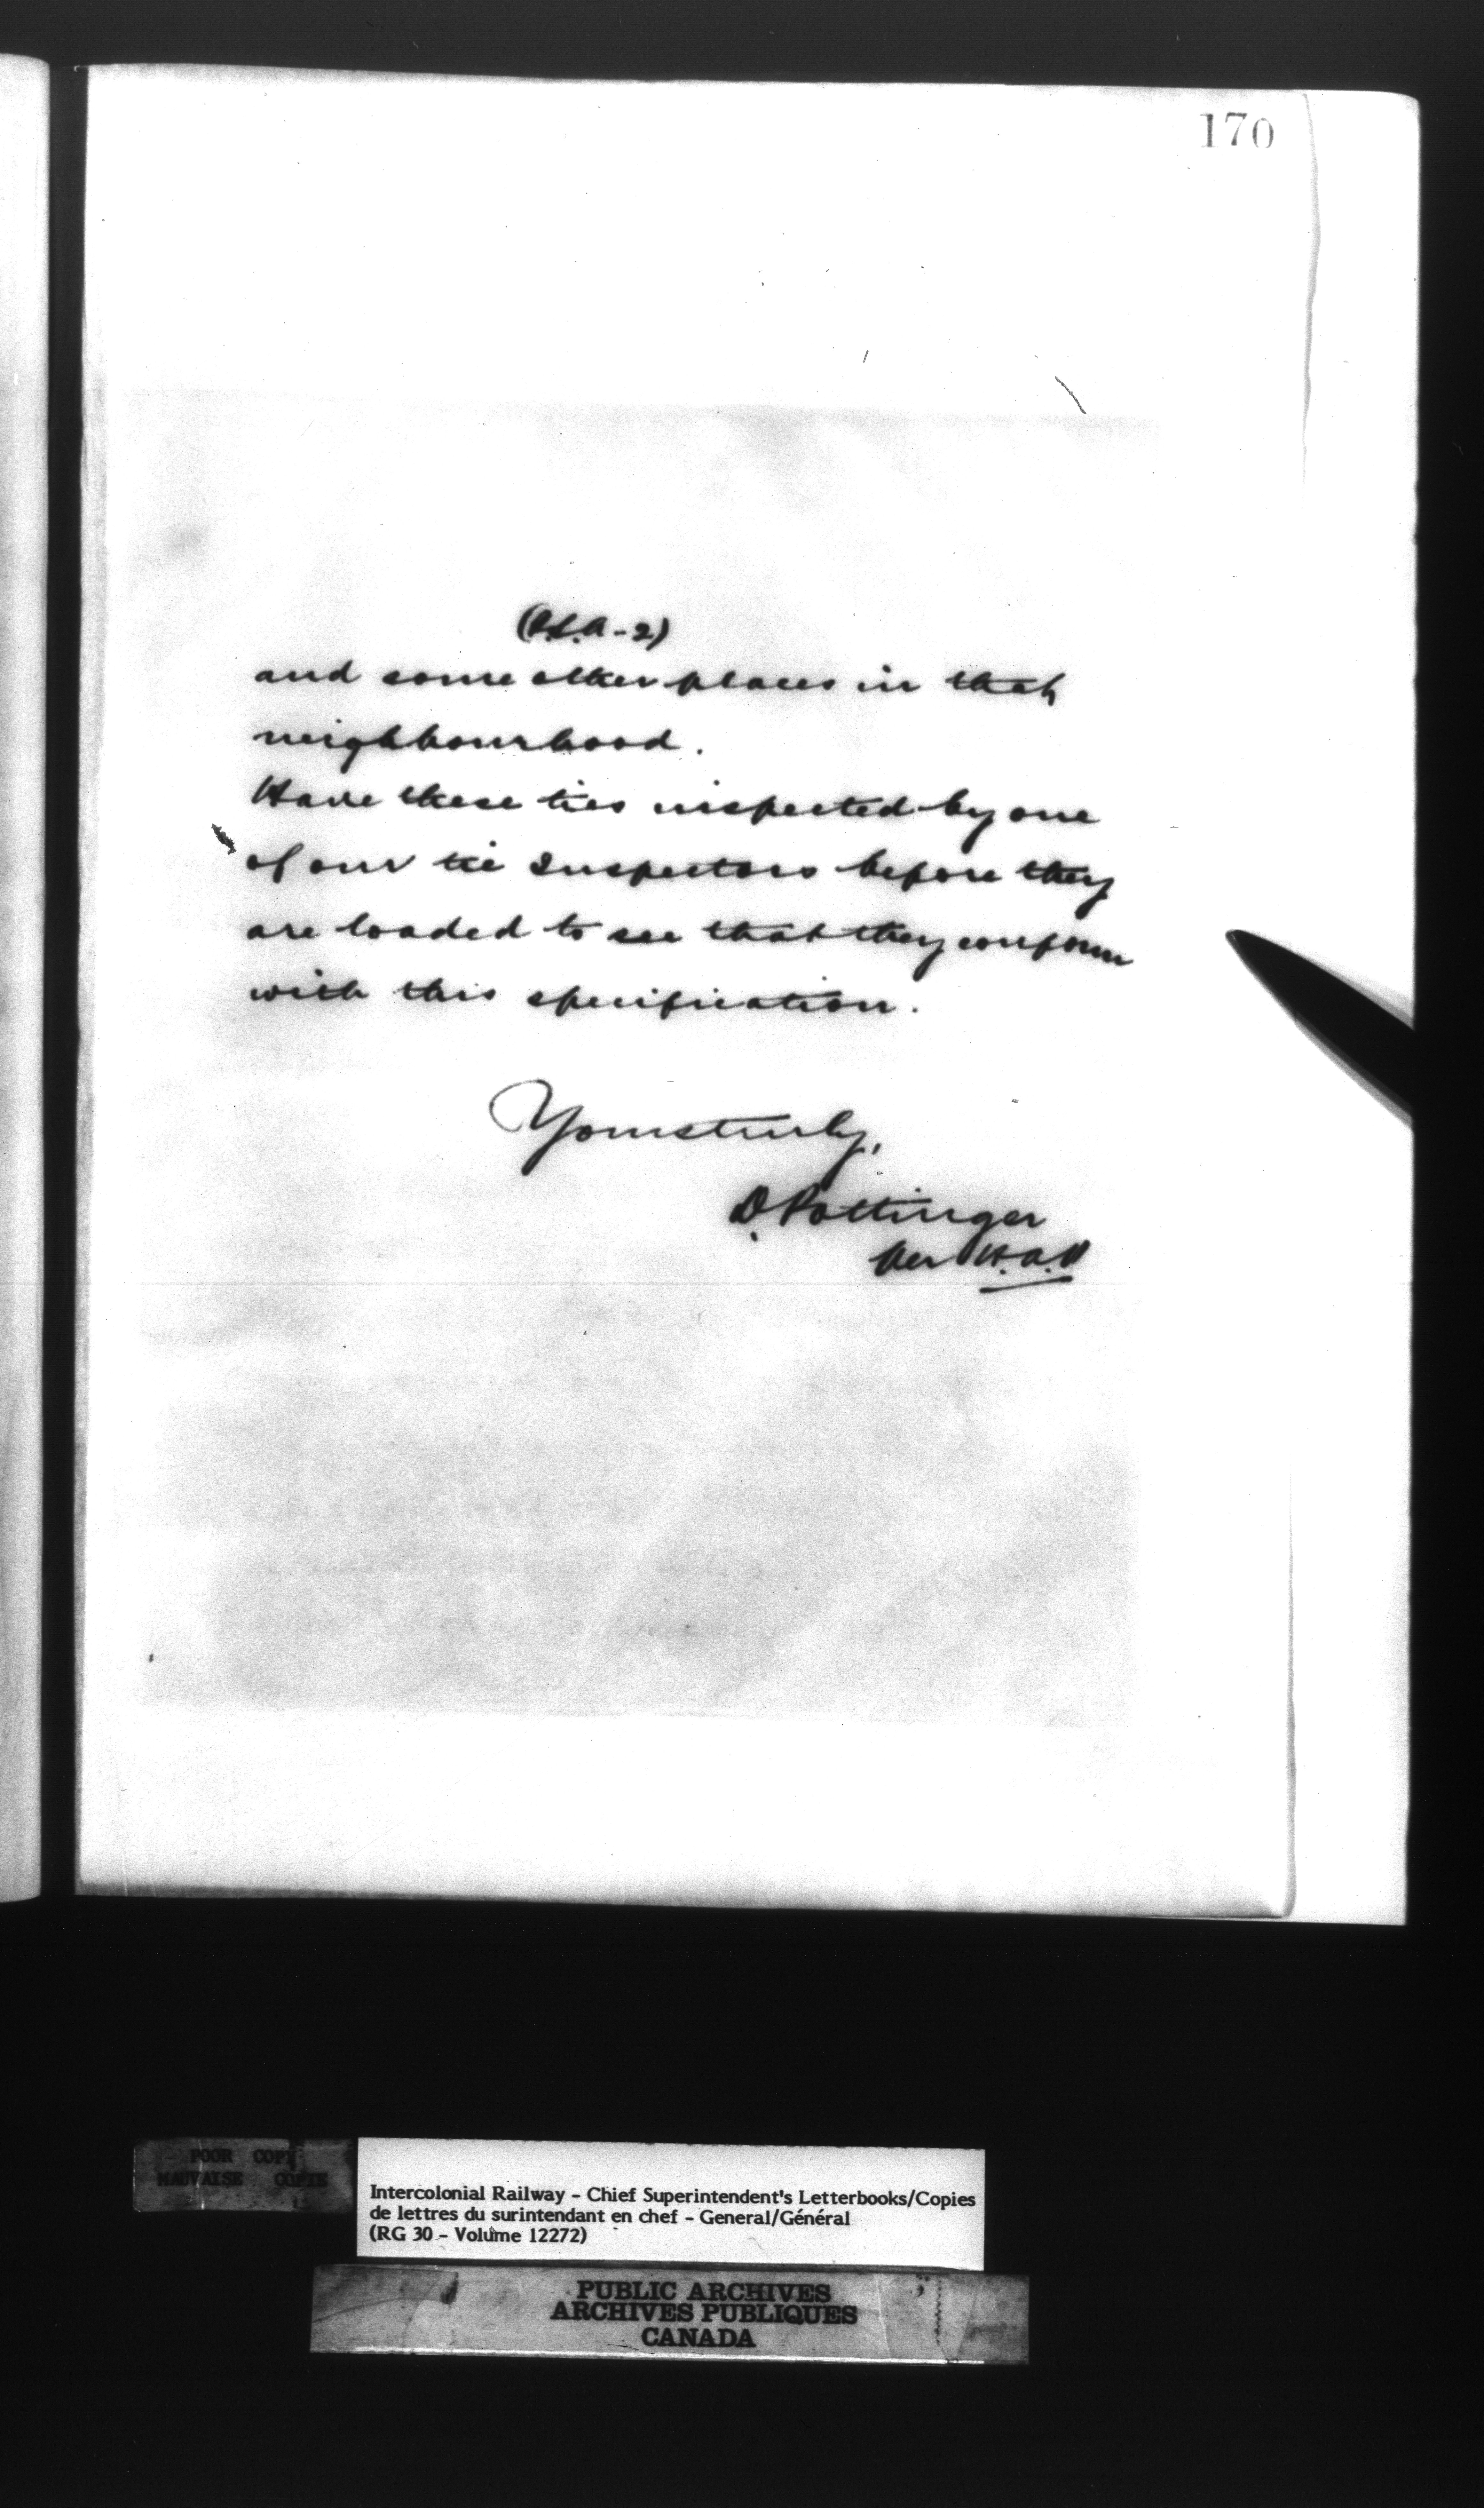 170
and some other places in that
neighbourhood.
Have these ties inspected by one
of our tie Inspectors before they
are loaded to see that they conform
with this specification.
Yours truly,
D. Pottinger
Per
POOR COPY
MAUVAISE COPIE
Intercolonial Railway - Chief Superintendent's Letterbooks/Copies
de lettres du surintendant en chef - General/Général
(RG 30 - Volume 12272)
PUBLIC ARCHIVES
ARCHIVES PUBLIQUES
CANADA